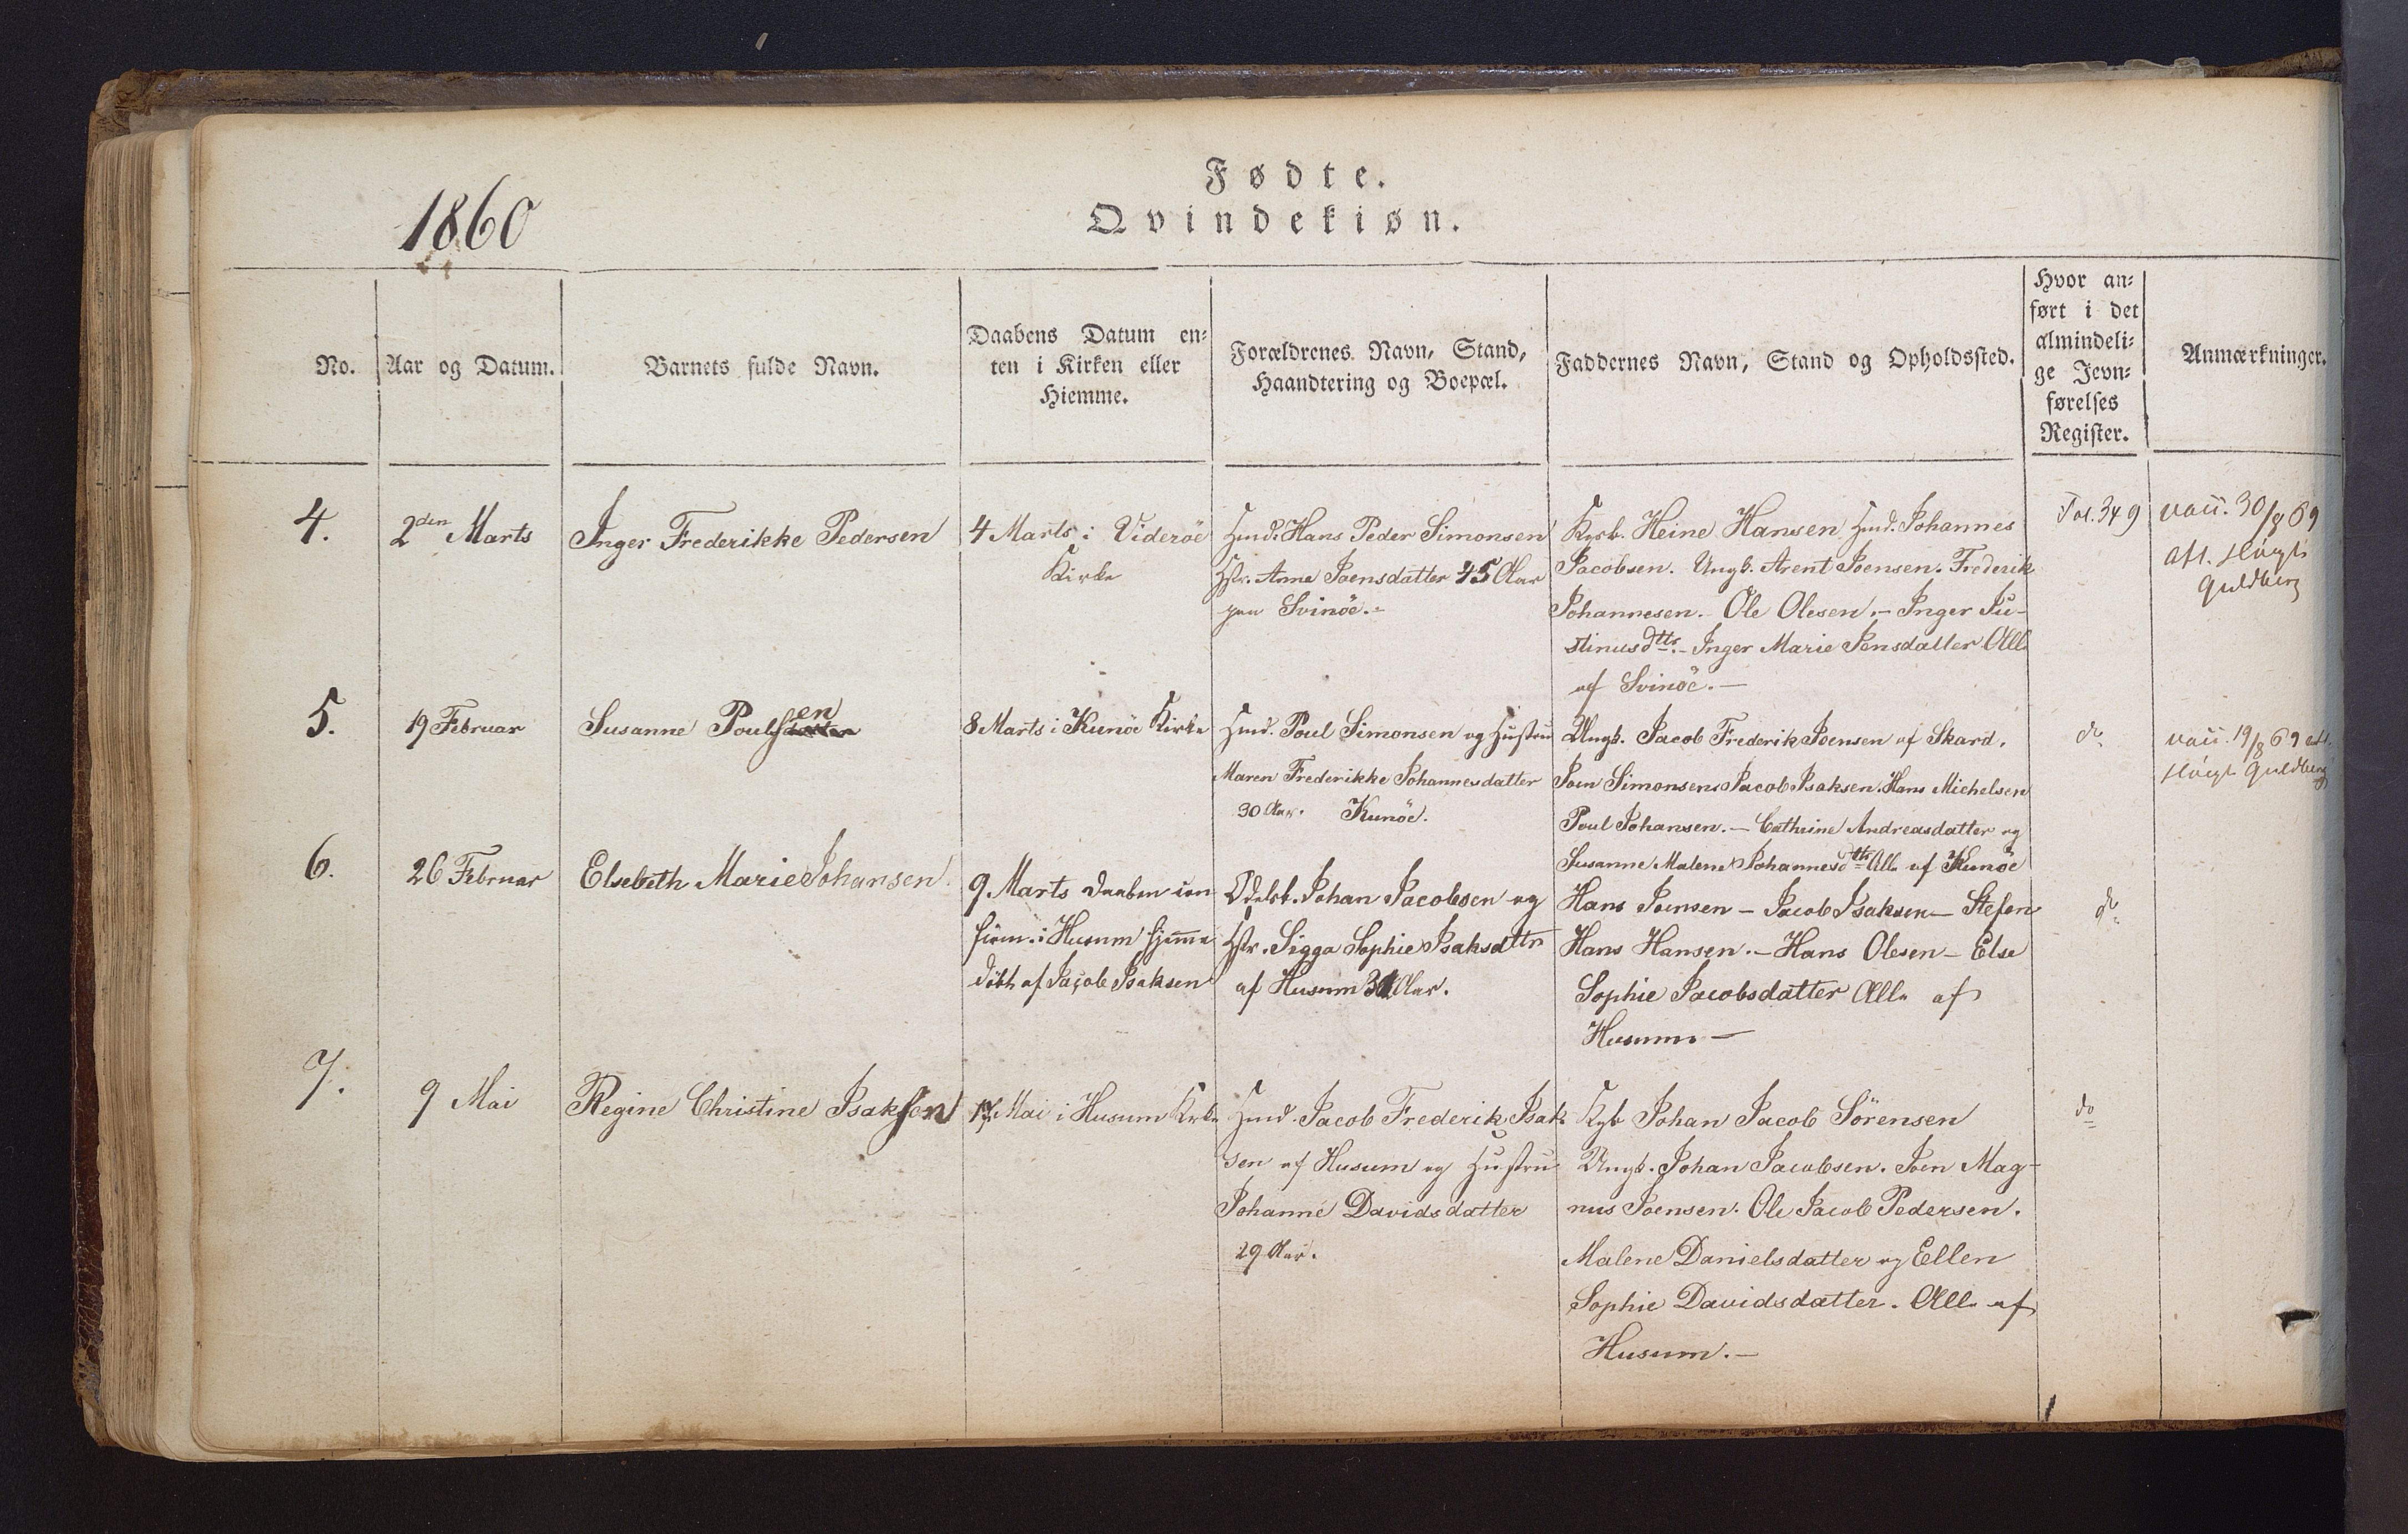 Fødte.
Qvindekiøn.
1860
No.
Aar og Datum.
Barnets fulde Navn.
Daabens Datum en-
ten i Kirken eller
Hiemme.
Forældrenes Navn, Stand,
Haandtering og Boepæl.
Faddernes Navn, Stand og Opholdssted.
Hvor an-
ført i det
almindeli-
ge Jevn-
førelses
Register.
Anmærkninger.
4.
2den Marts
Inger Frederikke Pedersen
4 Marts i Viderøe
Kirke
Hmd. Hans Peder Simonsen
Hstr. Anne Joensdatter 45 Aar
paa Svinöe.-
Heine Hansen Hmd. Johannes
Jacobsen. Ungk. Arent Joensen. Frederik
Johannesen. Ole Olesen.- Inger Ju-
stinusdttr.- Inger Marie Jensdatter Alle
af Svinöe.-
Fol. 349
vacc. 30/8 69
att.
Guldberg
5.
19 Februar
Susanne Poulsen
8 Marts i Kunöe Kirke
Hmd. Poul Simonsen og Hustru
Maren Frederikke Johannesdatter
30 Aar. Kunöe.
Ungk. Jacob Frederik Joensen af Skard.
Joen Simonsen Jacob Isaksen. Hans Michelsen
Poul Johansen.- Cathrine Andreasdatter og
Susanne Malene Johannesdttr Alle af Kunöe
do
vacc. 19/8 69 att.
Guldberg
6.
26 Februar
Elsebeth Marie Johansen
9 Marts Daaben con
firm. i Husum hjemme
döbt af Jacob Isaksen
Odelsb. Johan Jacobsen og
Hstr. Sigga Sophie Isaksdttr
af Husum 31 Aar.
Hans Joensen - Jacob Isaksen - Stefan
Hans Hansen.- Hans Olesen - Else
Sophie Jacobsdatter Alle af
Husum -
do
7.
9 Mai
Regine Christine Isaksen
17 Mai i Husum Kirke
Hmd. Jacob Frederik Isak
sen af Husum og Hustru
Johanne Davidsdatter
29 Aar.
Johan Jacob Sörensen
Ungk. Johan Jacobsen. Joen Mag-
nus Joensen. Ole Jacob Pedersen.
Malene Danielsdatter og Ellen
Sophie Davidsdatter. Alle af
Husum.-
do